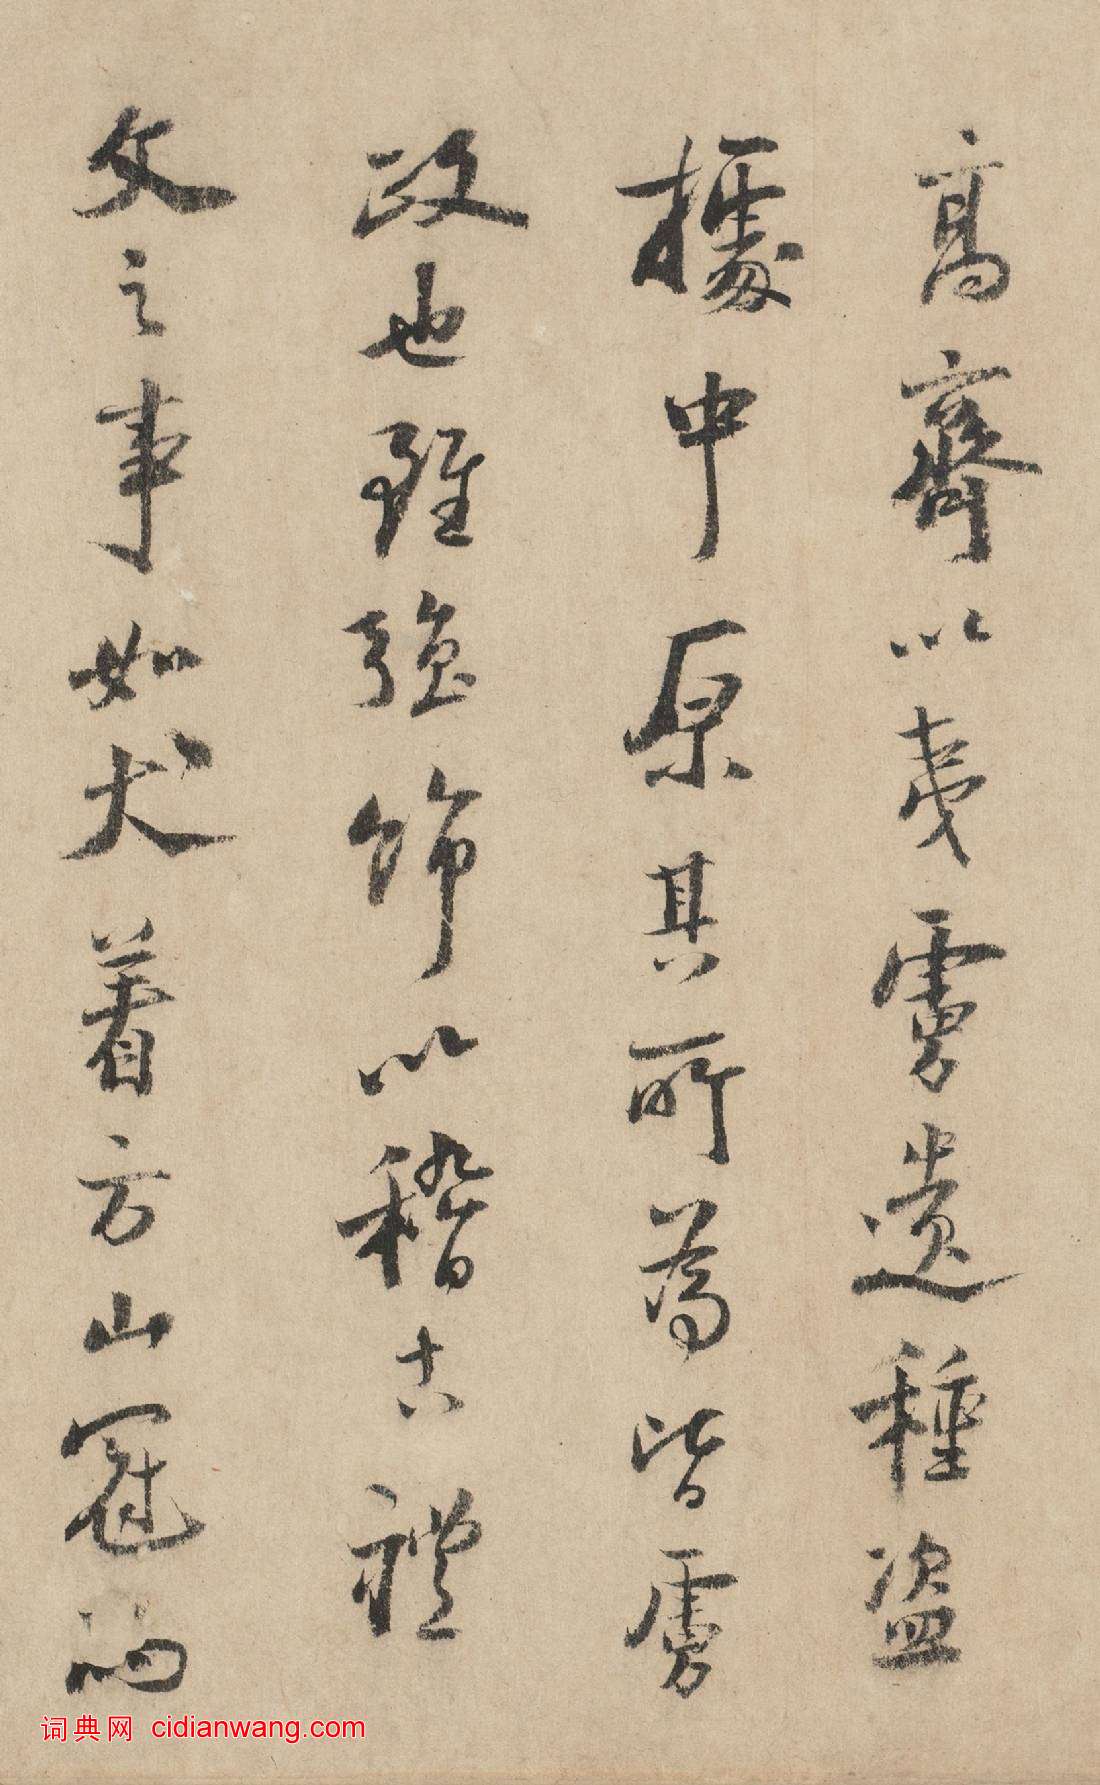 高齊以夷虜遺種盜
據中原其所為皆虜
政也雖強飾以稽古禮
文之事如犬着方山冠
词典网 cidianwang.com